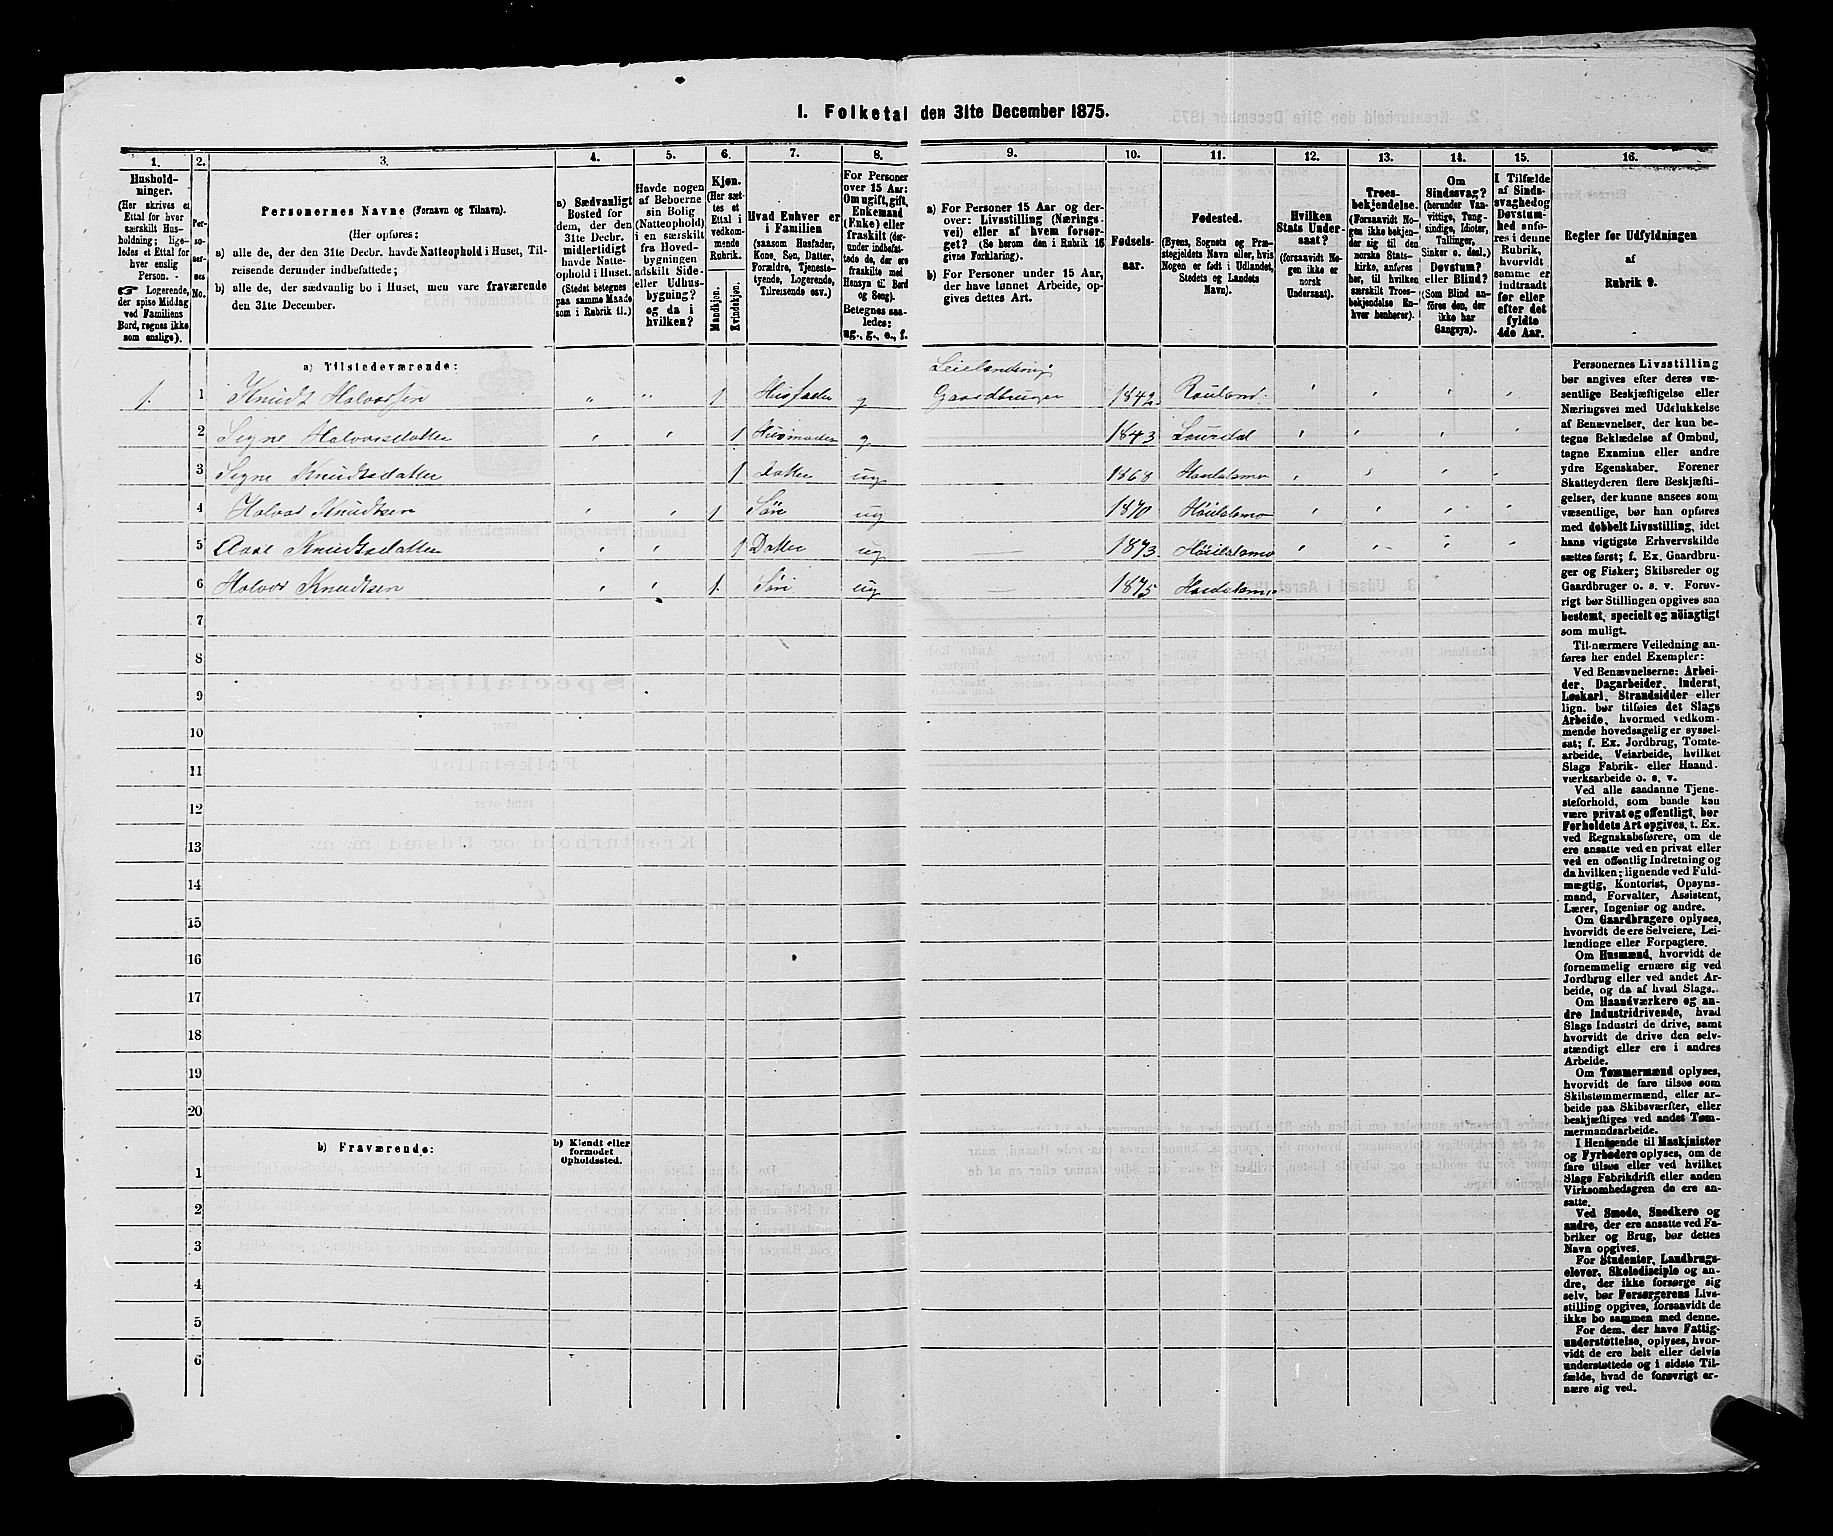 1. Folketal den 31te December 1875.
1. 2. 3. 4. 5. 6. 7. 8. 9. 10. 11. 12. 13. 14. 15. 16.
Hushold-
ninger.
(Her skrives et
Ettal for hver
særskilt Hus-
holdning; lige-
ledes et Ettal for
hver enslig
Person.
☛ Logerende,
der spise Middag
ved Familiens
Bord, regnes ikke
som enslige).
Per-
so-
ner-
nes
No.
Personernes Navne (Fornavn og Tilnavn).
(Her opføres:
a) alle de, der den 31te Decbr. havde Natteophold i Huset, Til-
reisende derunder indbefattede;
b) alle de, der sædvanlig bo i Huset, men vare fraværende
den 31te December.
a) Sædvanligt
Bosted for
dem, der den
31te Decbr.
midlertidigt
havde Natte-
ophold i Huset.
(Stedet betegnes
paa samme Maade
som i Rubrik 11.)
Havde nogen
af Beboerne
sin Bolig
(Natteophold)
i en særskilt
fra Hoved-
bygningen
adskilt Side-
eller Udhus-
bygning?
og da i
hvilken?
Kjøn.
(Her sæt-
tes et
Ettal i
vedkom-
mende
Rubrik.
Mandkjøn.
Kvindekjøn.
Hvad Enhver er
i Familien
(saasom Husfader,
Kone, Søn, Datter,
Forældre, Tjeneste-
tyende, Logerende,
Tilreisende osv.)
For Personer
over 15 Aar:
Om ugift, gift,
Enkemand
(Enke) eller
fraskilt (der-
under indbefat-
tede de, der ere
fraskilte med
Hensyn til Bord
og Seng).
Betegnes saa-
ledes:
ug., g., e., f.
a) For Personer 15 Aar og der-
over: Livsstilling (Nærings-
vei) eller af hvem forsør-
get? (Se herom den i Rubrik 16
givne Forklaring).
b) For Personer under 15 Aar,
der have lønnet Arbeide, op-
gives dettes Art.
Fødsels-
aar.
Fødested.
(Byens, Sognets og Præ-
stegjeldets Navn eller, hvis
Nogen er født i Udlandet,
Stedets og Landets
Navn).
Hvilken
Stats Under-
saat?
(forsaavidt No-
gen ikke er
norsk
Undersaat).
Troes-
bekjendelse.
(Forsaavidt No-
gen ikke bekjen-
der sig til den
norske Stats-
kirke, anføres
her, til hvilken
særskilt Troes-
bekjendelse En-
hver henhører).
Om
Sindssvag?
(herunder Van-
vittige, Tung-
sindige, Idioter,
Tullinger,
Sinker o. desl.).
Døvstum?
eller Blind?
(Som Blind an-
føres den, der
ikke har
Gangsyn).
I Tilfælde
af Sinds-
svaghed og
Døvstum-
hed anfø-
res i denne
Rubrik,
hvorvidt
samme er
indtraadt
før eller
efter det
fyldte
4de Aar.
Regler for Udfyldningen
af
Rubrik 9.
a) Tilstedeværende:
Leilændings
1. 1 Knudt Halvorsen " " 1 Husfader g Gaardbruger 1842 Rauland
2 Signe Halvorsdatter 1 Husmoder g 1843 Laurdal
3 Signe Knudtsdatter 1 Datter ug 1868 Høidalsmo
4 Halvor Knudtsen 1 Søn ug 1870 Høidalsmo
5 Aase Knudtsdatter 1 Datter ug 1873 Høidalsmo
6 Halvor Knudtsen 1 Søn ug 1875 Høidalsmo
7
8
9
10
11
12
13
14
15
16
17
18
19
20
b) Fraværende:
b) Kjendt eller
formodet
Opholdssted.
1
2
3
4
5
6
Personernes Livsstilling
bør angives efter deres væ-
sentlige Beskjæftigelse eller
Næringsvei med Udelukkelse
af Benævnelser, der kun be-
tegne Beklædelse af Ombud,
tagne Examina eller andre
ydre Egenskaber. Forener
Skatteyderen flere Beskjæfti-
gelser, der kunne ansees som
væsentlige, bør han opføres
med dobbelt Livsstilling, idet
hans vigtigste Erhvervskilde
sættes først; f. Ex. Gaardbru-
ger og Fisker; Skibsreder og
Gaardbruger o. s. v. Forøv-
rigt bør Stillingen opgives saa
bestemt, specielt og nøiagtigt
som muligt.
Til nærmere Veiledning an-
føres her endel Exempler:
Ved Benævnelserne: Arbei-
der, Dagarbeider, Inderst,
Løskarl, Strandsidder eller
lign. bør tilføies det Slags
Arbeide, hvormed vedkom-
mende hovedsagelig er syssel-
sat; f. Ex. Jordbrug, Tomte-
arbeide, Veiarbeide, hvilket
Slags Fabrik- eller Haand-
værksarbeide o. s. v.
Ved alle saadanne Tjene-
steforhold, som baade kan
være privat og offentligt, bør
Forholdets Art opgives, t. Ex.
ved Regnskabsførere, om de
ere ansatte ved en privat eller
ved en offentlig Indretning og
da hvilken; lignende ved Fuld-
mægtig, Kontorist, Opsyns-
mand, Forvalter, Assistent,
Lærer, Ingeniør og andre.
Om Gaardbrugere oplyses,
hvorvidt de ere Selveiere, Lei-
lændinge eller Forpagtere.
Om Husmænd, hvorvidt de
fornemmelig ernære sig ved
Jordbrug eller ved andet Ar-
beide, og da af hvad Slags.
Om Haandværkere og an-
dre Industridrivende, hvad
Slags Industri de drive, samt
hvorvidt de drive den selv-
stændigt eller ere i andres
Arbeide.
Om Tømmermænd oplyses,
hvorvidt de fare tilsøs som
Skibstømmermænd, eller ar-
beide paa Skibsværfter, eller
beskjæftiges ved andet Tøm-
mermandsarbeide.
I Henseende til Maskinister
og Fyrbødere oplyses, om de
fare tilsøs eller ved hvilket
Slags Fabrikdrift eller anden
Virksomhedsgren de ere an-
satte.
Ved Smede, Snedkere og
andre, der ere ansatte ved Fa-
briker og Brug, bør dettes
Navn opgives.
For Studenter, Landbrugs-
elever, Skoledisciple og an-
dre, der ikke forsørge sig
selv, bør Forsørgerens Livs-
stilling opgives, forsaavidt de
ikke bo sammen med denne.
For dem, der have Fattig-
understøttelse, oplyses, hvor-
vidt de ere helt eller delvis
understøttede og i sidste Til-
fælde, hvad de forøvrigt er-
nære sig ved.